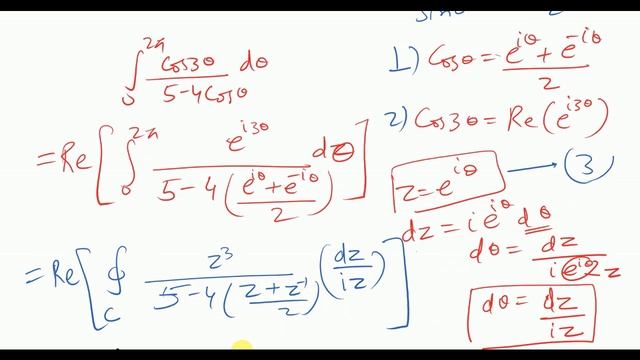 ∫₀^{2π} cos3θ / (5-4cosθ) dθ
= Re[ ∫₀^{2π} e^{i3θ} / (5-4((e^{iθ}+e^{-iθ})/2)) dθ ]
= Re[ ∮_C z³ / (5-4((z+z⁻¹)/2)) (dz/iz) ]
1) Cosθ = (e^{iθ}+e^{-iθ})/2
2) Cos3θ = Re(e^{i3θ})
z = e^{iθ} → 3
dz = i e^{iθ} dθ
dθ = dz / i e^{iθ} z
dθ = dz/iz